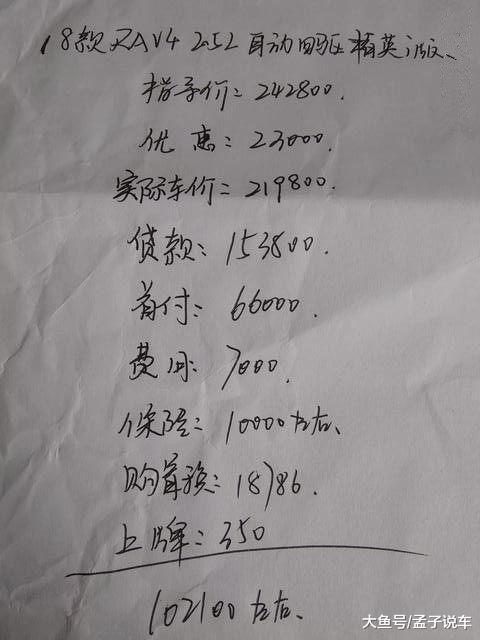 18款RAV4 2.5L自动四驱精英版、
指导价：242800.
优惠：23000.
实际车价：219800.
贷款：153800.
首付：66000.
费用：7000.
保险：10000左右、
购置税：18786.
上牌：350
102100左右.
大鱼号/孟子说车